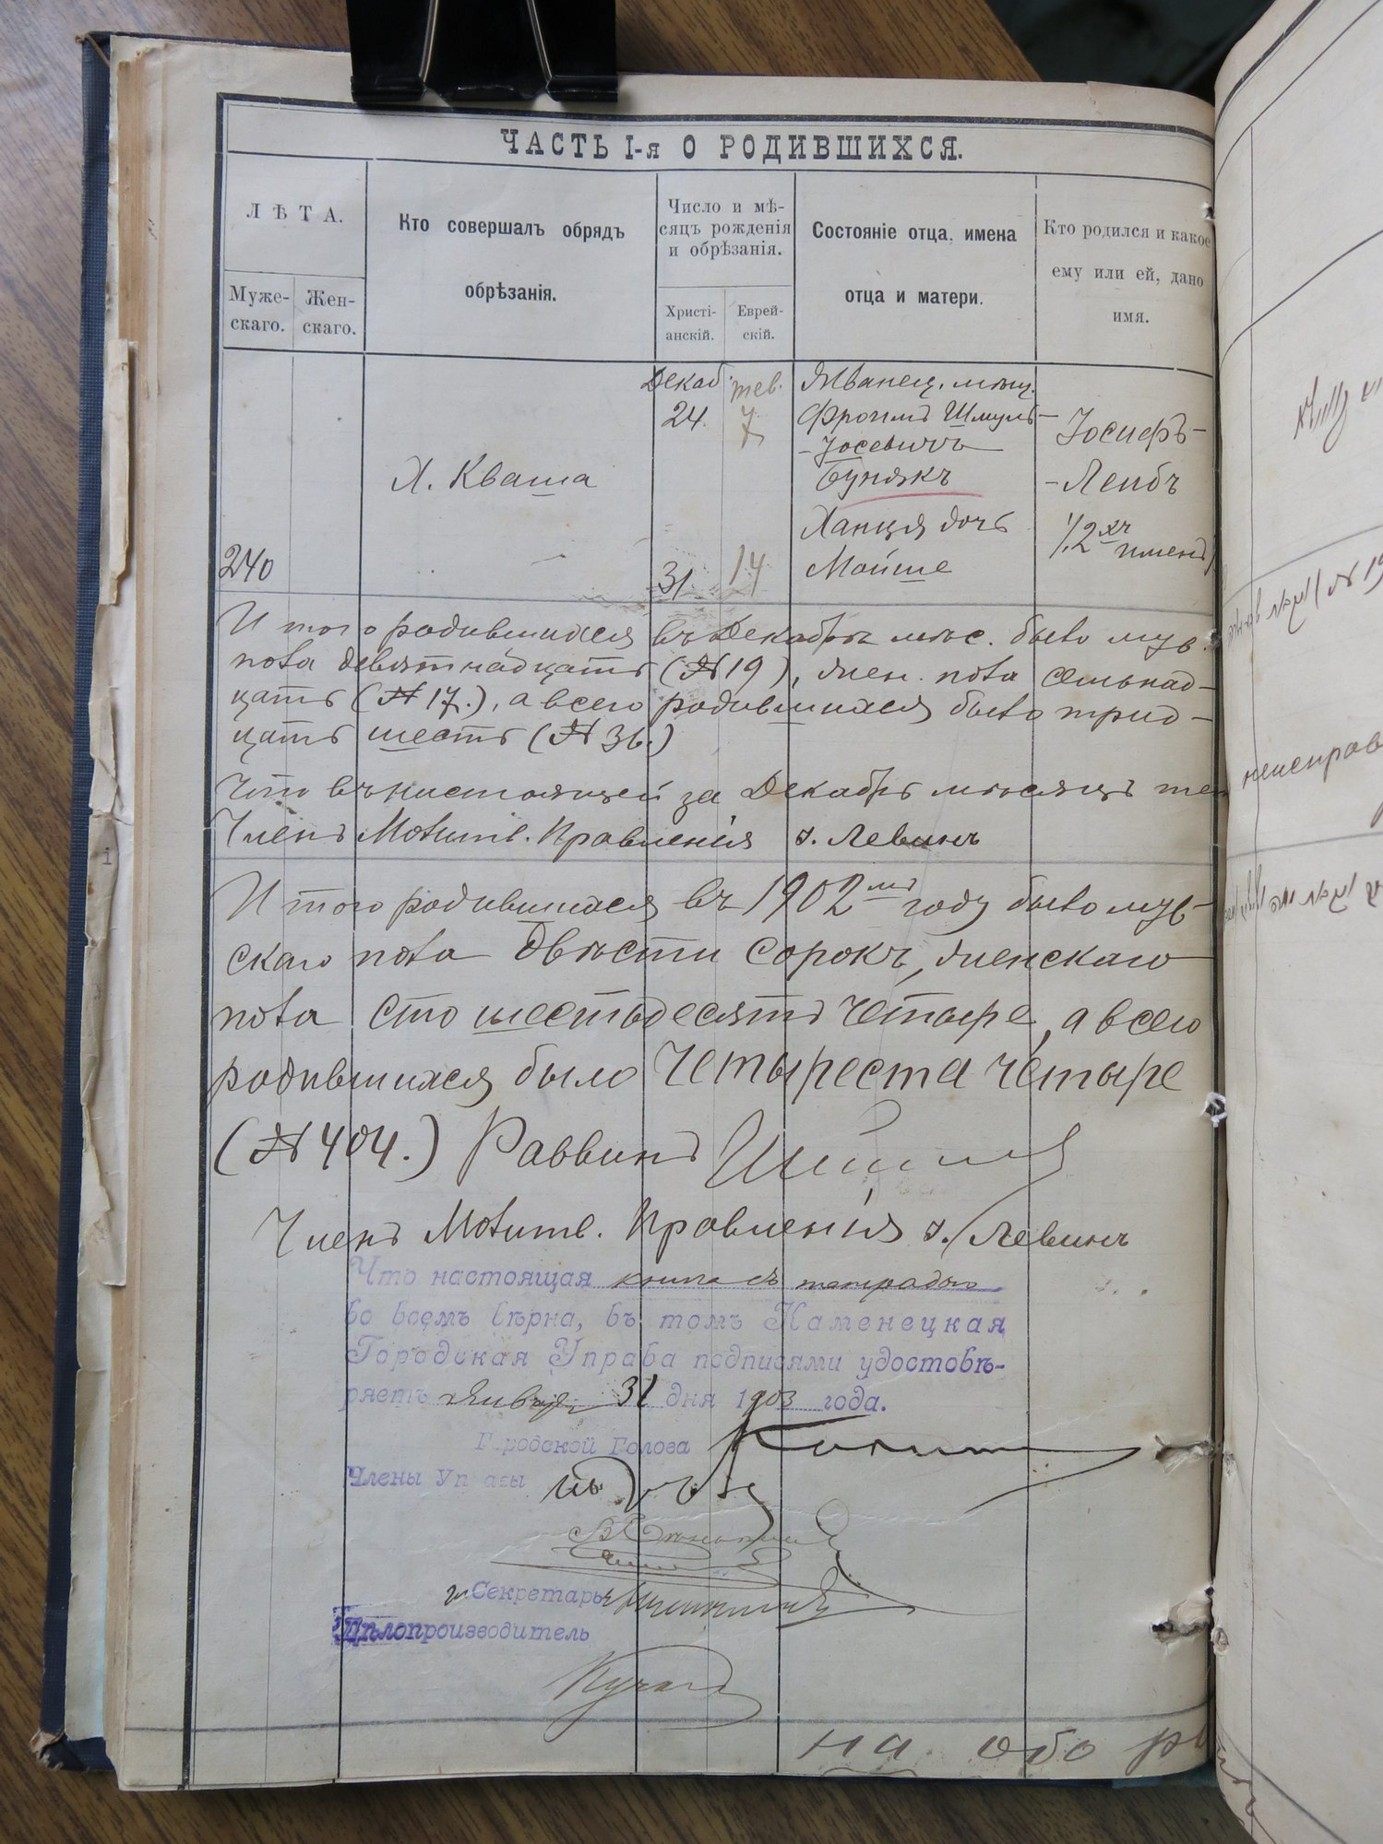 ЧАСТЬ I-я О РОДИВШИХСЯ.
ЛѢТА.
Муже-
скаго.
Жен-
скаго.
Кто совершалъ обрядъ
обрѣзанія.
Число и мѣ-
сяцъ рожденія
и обрѣзанія.
Христі-
анскій.
Еврей-
скій.
Состояніе отца, имена
отца и матери.
Кто родился и какое
ему или ей, дано
имя.
240
Х. Кваша
Декаб.
24
31
тев.
7
14
Жванец. мѣщ.
Фроимъ Шмуль-
-Іосевичъ
Бунякъ
Ханця дочь
Мойше
Іосифъ-
-Лейбъ
(2хъ
именъ)
Итого родившихся въ Декабрѣ мѣс. было муж.
пола девятнадцать (№19), жен. пола семьнад-
цать (№17.), а всего родившихся было трид-
цать шесть (№36.)
Что въ настоящей за Декабрь мѣсяцъ
Членъ Молитв. Правленія Левинъ
Итого родившихся въ 1902мъ году было муж-
скаго пола двѣсти сорокъ, женскаго
пола сто шестьдесятъ четыре, а всего
родившихся было четыреста четыре
(№404.) Раввинъ
Членъ Молитв. Правленія Левинъ
Что настоящая книга съ тетрадью
во всемъ вѣрна, въ томъ Каменецкая
Городская Управа подписями удостовѣ-
ряетъ Января 31 дня 1903 года.
Городской Голова
Члены Управы
Секретарь
Дѣлопроизводитель
на обо